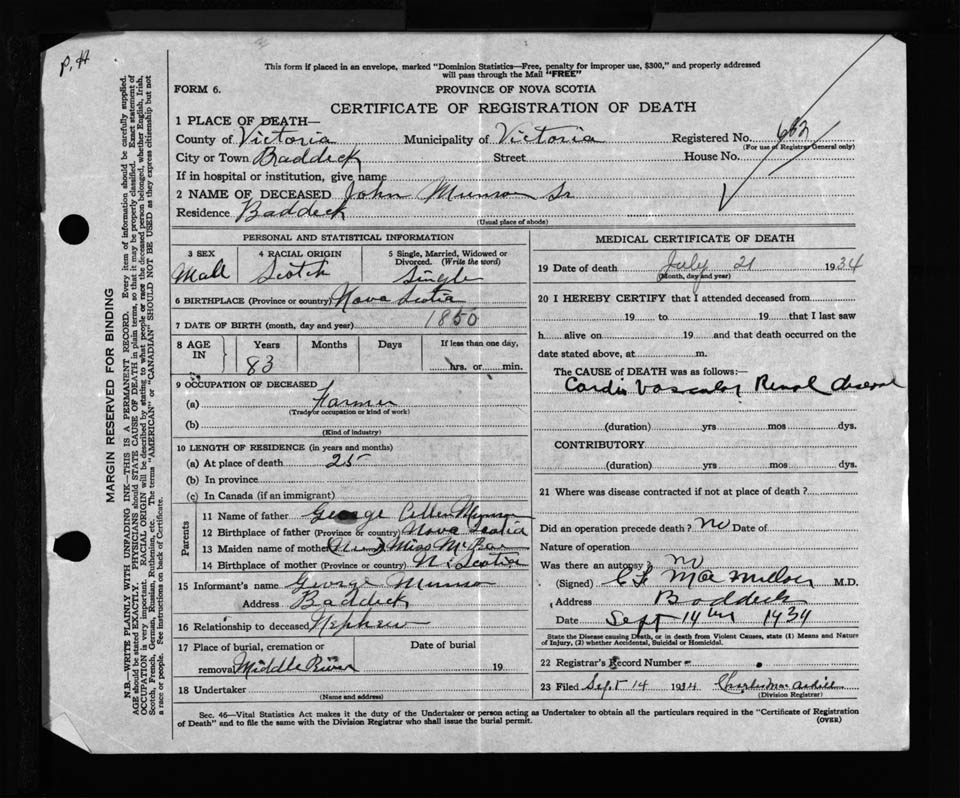 P.H
This form if placed in an envelope, marked "Dominion Statistics—Free, penalty for improper use, $300," and properly addressed
will pass through the Mail "FREE"
FORM 6. PROVINCE OF NOVA SCOTIA
CERTIFICATE OF REGISTRATION OF DEATH
1 PLACE OF DEATH—
County of Victoria Municipality of Victoria Registered No. 632
(For use of Registrar General only)
City or Town Baddeck Street House No.
If in hospital or institution, give name
2 NAME OF DECEASED John Munro Sr
Residence Baddeck
(Usual place of abode)
PERSONAL AND STATISTICAL INFORMATION
3 SEX 4 RACIAL ORIGIN 5 Single, Married, Widowed or
Divorced. (Write the word)
Male Scotch Single
6 BIRTHPLACE (Province or country) Nova Scotia
7 DATE OF BIRTH (month, day and year) 1850
8 AGE IN Years Months Days If less than one day,
83 hrs. or min.
9 OCCUPATION OF DECEASED
(a) Farmer
(Trade or occupation or kind of work)
(b)
(Kind of industry)
10 LENGTH OF RESIDENCE (in years and months)
(a) At place of death 25
(b) In province
(c) In Canada (if an immigrant)
Parents
11 Name of father George Munro
12 Birthplace of father (Province or country) Nova Scotia
13 Maiden name of mother Miss McRae
14 Birthplace of mother (Province or country) N. Scotia
15 Informant's name George Munro
Address Baddeck
16 Relationship to deceased Nephew
17 Place of burial, cremation or Date of burial
removal Middle River 19
18 Undertaker
(Name and address)
MEDICAL CERTIFICATE OF DEATH
19 Date of death July 21 1934
(Month, day and year)
20 I HEREBY CERTIFY that I attended deceased from
19 to 19 that I last saw
h alive on 19 and that death occurred on the
date stated above, at m.
The CAUSE OF DEATH was as follows:—
Cardio Vascular Renal disease
(duration) yrs mos dys.
CONTRIBUTORY
(duration) yrs mos dys.
21 Where was disease contracted if not at place of death?
Did an operation precede death? no Date of
Nature of operation
Was there an autopsy? no
(Signed) C L MacMillan M.D.
Address Baddeck
Date Sept 14th 1934
State the Disease causing Death, or in death from Violent Causes, state (1) Means and Nature
of Injury, (2) whether Accidental, Suicidal or Homicidal.
22 Registrar's Record Number
23 Filed Sept 14 1934 Charles
(Division Registrar)
Sec. 46—Vital Statistics Act makes it the duty of the Undertaker or person acting as Undertaker to obtain all the particulars required in the "Certificate of Registration
of Death" and to file the same with the Division Registrar who shall issue the burial permit. (OVER)
MARGIN RESERVED FOR BINDING
N.B.—WRITE PLAINLY WITH UNFADING INK—THIS IS A PERMANENT RECORD. Every item of information should be carefully supplied.
AGE should be stated EXACTLY. PHYSICIANS should STATE CAUSE OF DEATH in plain terms, so that it may be properly classified. Exact statement of
OCCUPATION is very important. RACIAL ORIGIN will be described by stating to what people or race the deceased person belonged, whether English, Irish,
Scotch, French, German, Russian, Ruthenian, etc. The terms "AMERICAN" or "CANADIAN" SHOULD NOT BE USED as they express citizenship but not
a race or people. See instructions on back of Certificate.